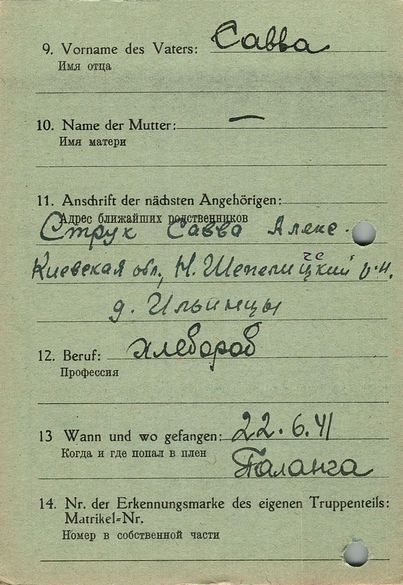 9. Vorname des Vaters: Савва
Имя отца
10. Name der Mutter: —
Имя матери
11. Anschrift der nächsten Angehörigen:
Адрес ближайших родственников
Струк Савва Алекс.
Киевская обл, Н. Шепелицкий р-н.
д. Ильинцы
12. Beruf: хлебороб
Профессия
13 Wann und wo gefangen: 22.6.41
Когда и где попал в плен
Паланга
14. Nr. der Erkennungsmarke des eigenen Truppenteils:
Matrikel-Nr.
Номер в собственной части